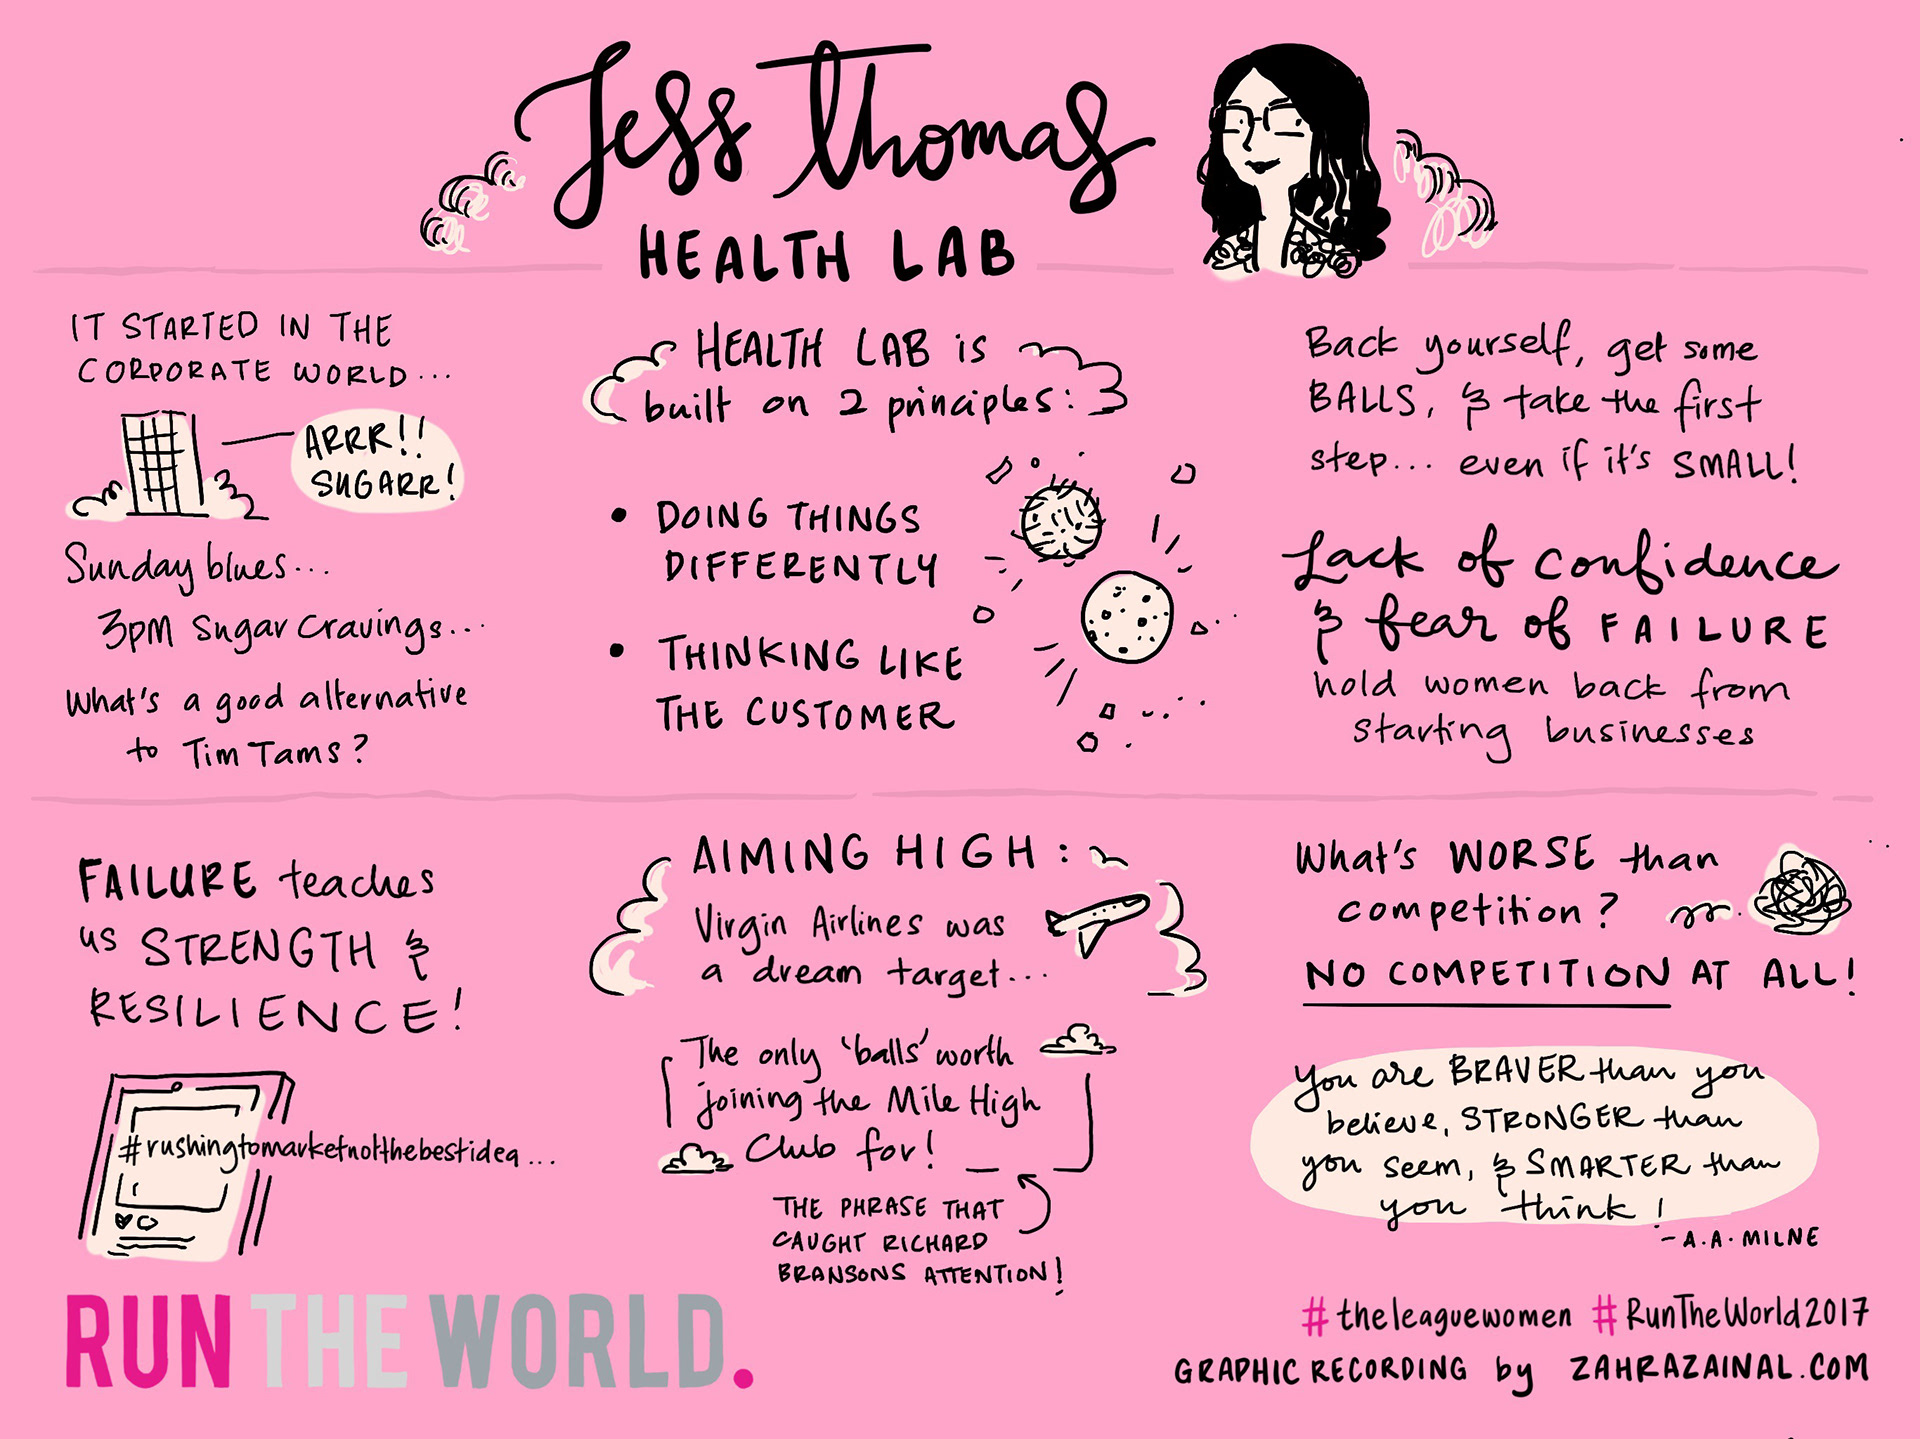 Jess Thomas
HEALTH LAB
IT STARTED IN THE
CORPORATE WORLD...
ARRR!!
SUGARR!
Sunday blues...
3pm Sugar Cravings...
What's a good alternative
to Tim Tams?
HEALTH LAB is
built on 2 principles:
• DOING THINGS
DIFFERENTLY
• THINKING LIKE
THE CUSTOMER
Back yourself, get some
BALLS, & take the first
step... even if it's SMALL!
Lack of confidence
& fear of FAILURE
hold women back from
starting businesses
FAILURE teaches
us STRENGTH &
RESILIENCE!
#rushingtomarketnotthebestidea...
AIMING HIGH:
Virgin Airlines was
a dream target...
The only 'balls' worth
joining the Mile High
Club for!
THE PHRASE THAT
CAUGHT RICHARD
BRANSONS ATTENTION!
What's WORSE than
competition?
NO COMPETITION AT ALL!
You are BRAVER than you
believe, STRONGER than
you seem, & SMARTER than
you think!
- A.A. MILNE
RUN THE WORLD.
#theleaguewomen #RunTheWorld2017
GRAPHIC RECORDING by ZAHRAZAINAL.COM